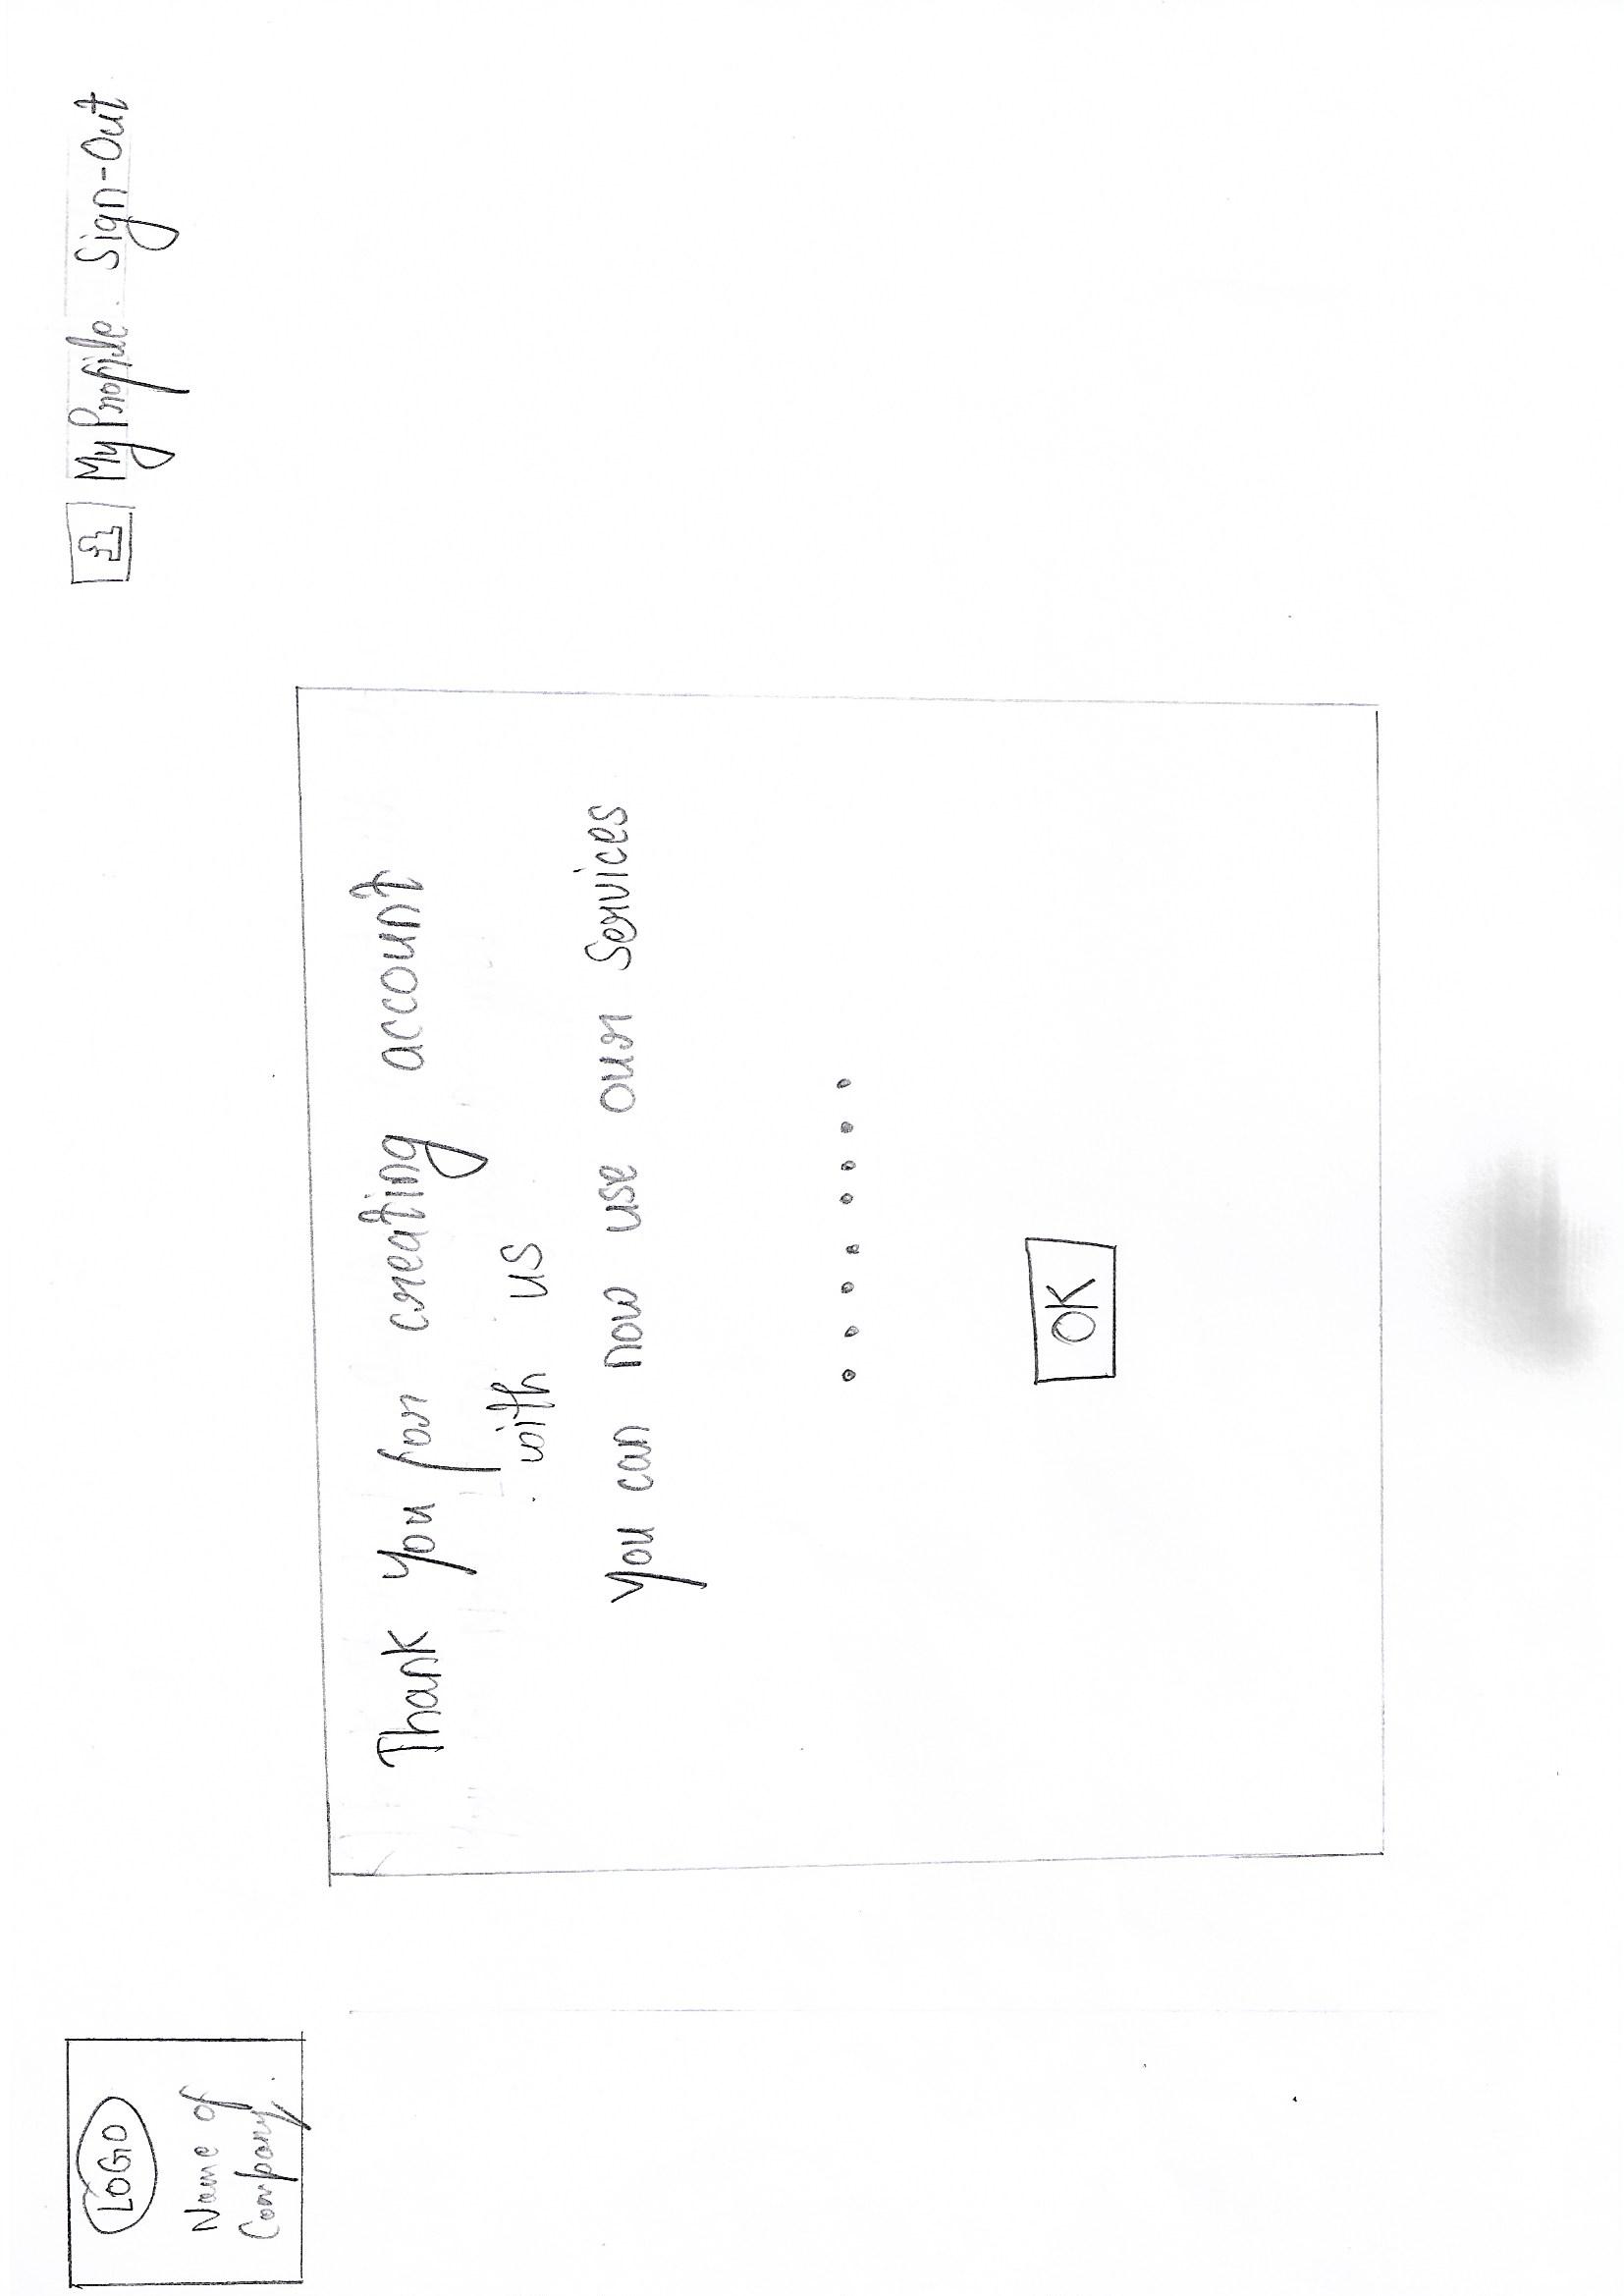 LOGO
Name of
Company.
My Profile Sign-Out
Thank you for creating account
with us
You can now use our Services
........
OK